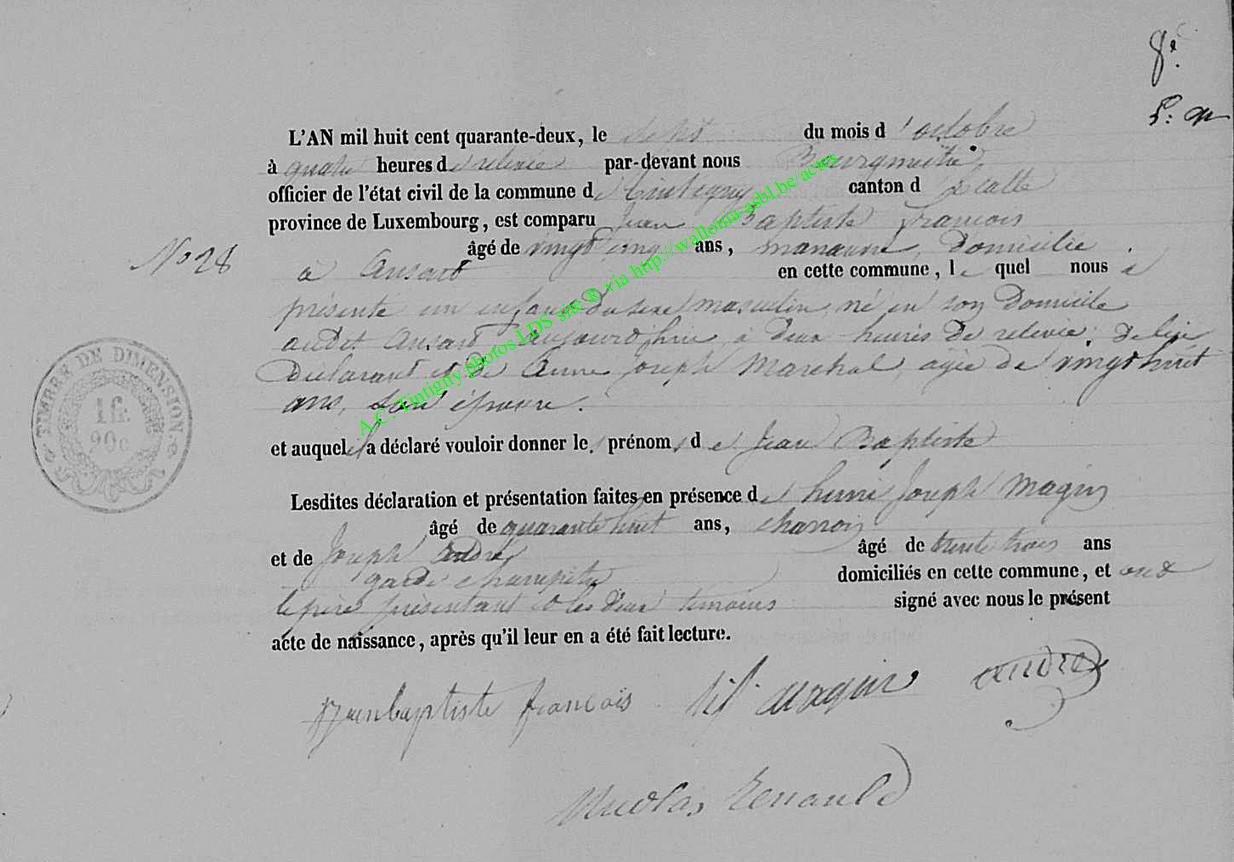 8e.
L'AN mil huit cent quarante-deux, le sept du mois d'octobre
à quatre heures de relevée par-devant nous Bourgmestre
officier de l'état civil de la commune de Tintigny canton d'Etalle
province de Luxembourg, est comparu Jean Baptiste François
No 28
âgé de vingt cinq ans, manœuvre, domicilié
à Ansart en cette commune, lequel nous a
présenté un enfant du sexe masculin, né en son domicile
audit Ansart aujourd'hui, à deux heures de relevée, de lui
Déclarant et de Anne Joseph Maréchal agée de vingt huit
ans, son épouse.
et auquel il a déclaré vouloir donner les prénoms de Jean Baptiste
Lesdites déclaration et présentation faites en présence de Henri Joseph Magin
âgé de quarante huit ans, charron
et de Joseph André âgé de trente trois ans
garde champêtre domiciliés en cette commune, et ont
le père présentant et les deux témoins signé avec nous le présent
acte de naissance, après qu'il leur en a été fait lecture.
Jean baptiste francois magin andre
Nicolas Renauld
TIMBRE DE DIMENSION
1 fr.
90 c.
A.C. Tintigny photos LDS sax ® via http://wallonia-asbl.be/actes